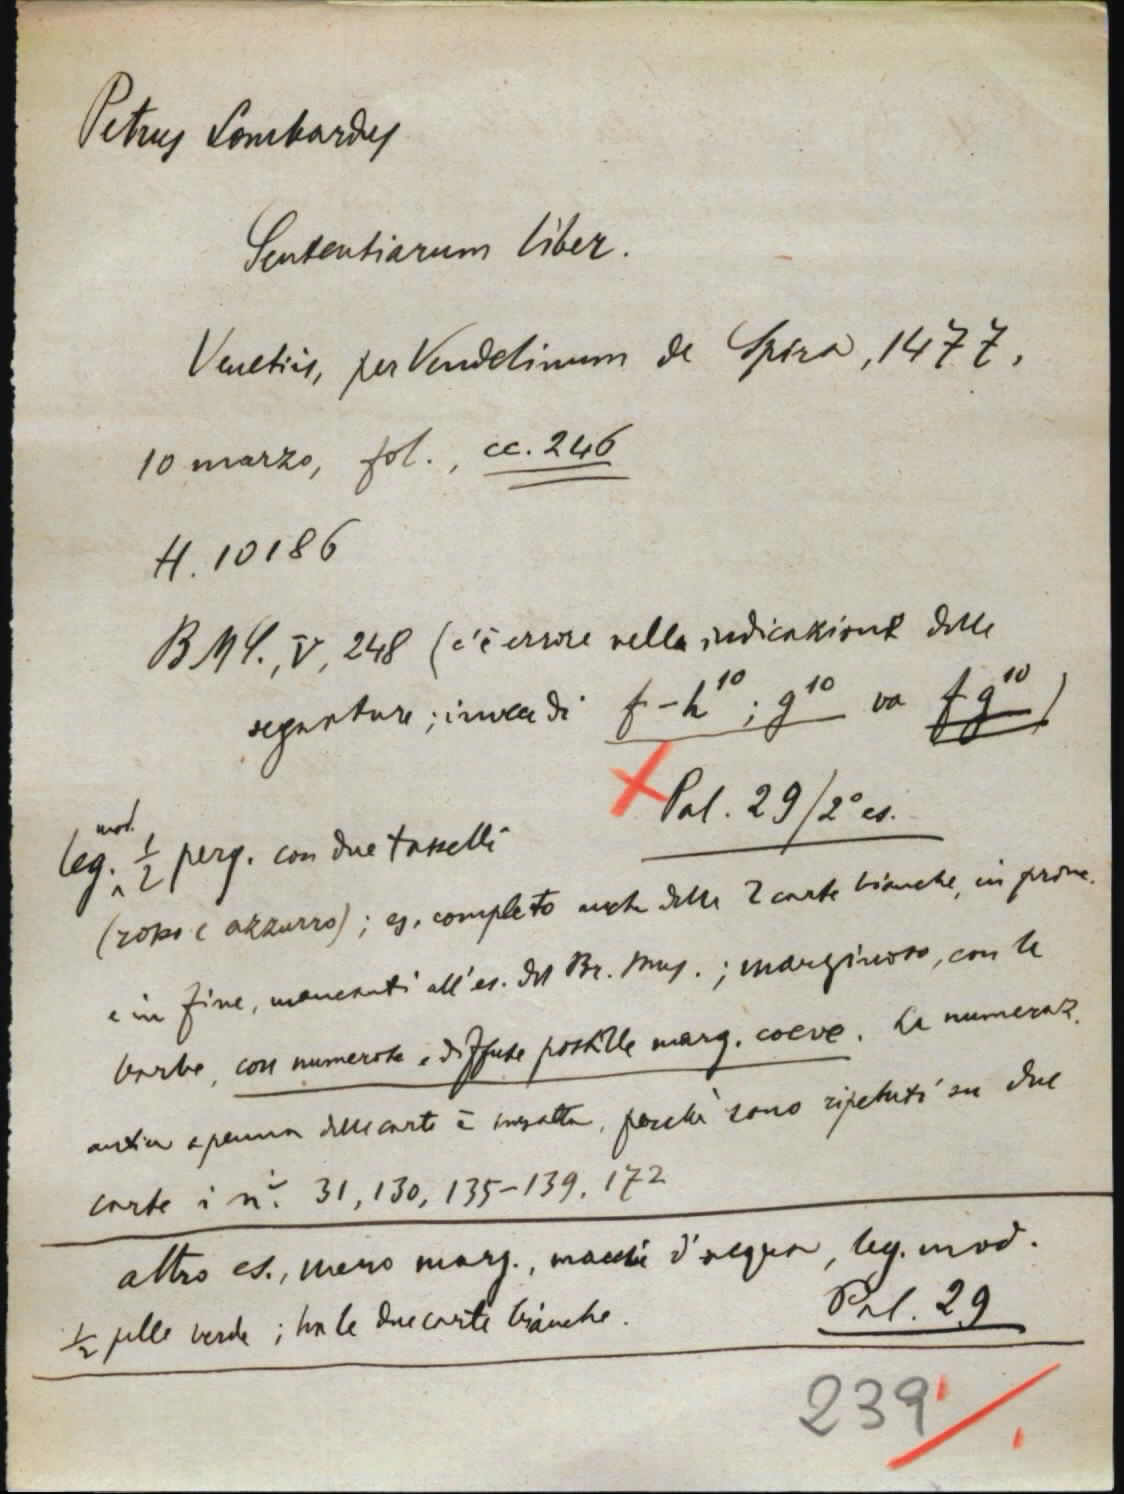 Petrus Lombardus
Sententiarum liber.
Venetiis, per Vendelinum de Spira, 1477,
10 marzo, fol., cc. 246
H. 10186
BMC., V, 248 (c'è errore nella indicazione delle
segnature; invece di f-h¹⁰; g¹⁰ va f g¹⁰)
Pal. 29/2° es.
leg. mod. ½ perg. con due tasselli
(rosso e azzurro); es. completo anche delle 2 carte bianche, in princ.
e in fine, mancanti all'es. del Br. Mus.; marginoso, con le
barbe, con numerose e diffuse postille marg. coeve. La numeraz.
antica a penna delle carte è inesatta, perchè sono ripetuti su due
carte i n.ⁱ 31, 130, 135-139, 172
altro es., meno marg., macchie d'acqua, leg. mod.
½ pelle verde; ha le due carte bianche. Pal. 29
239